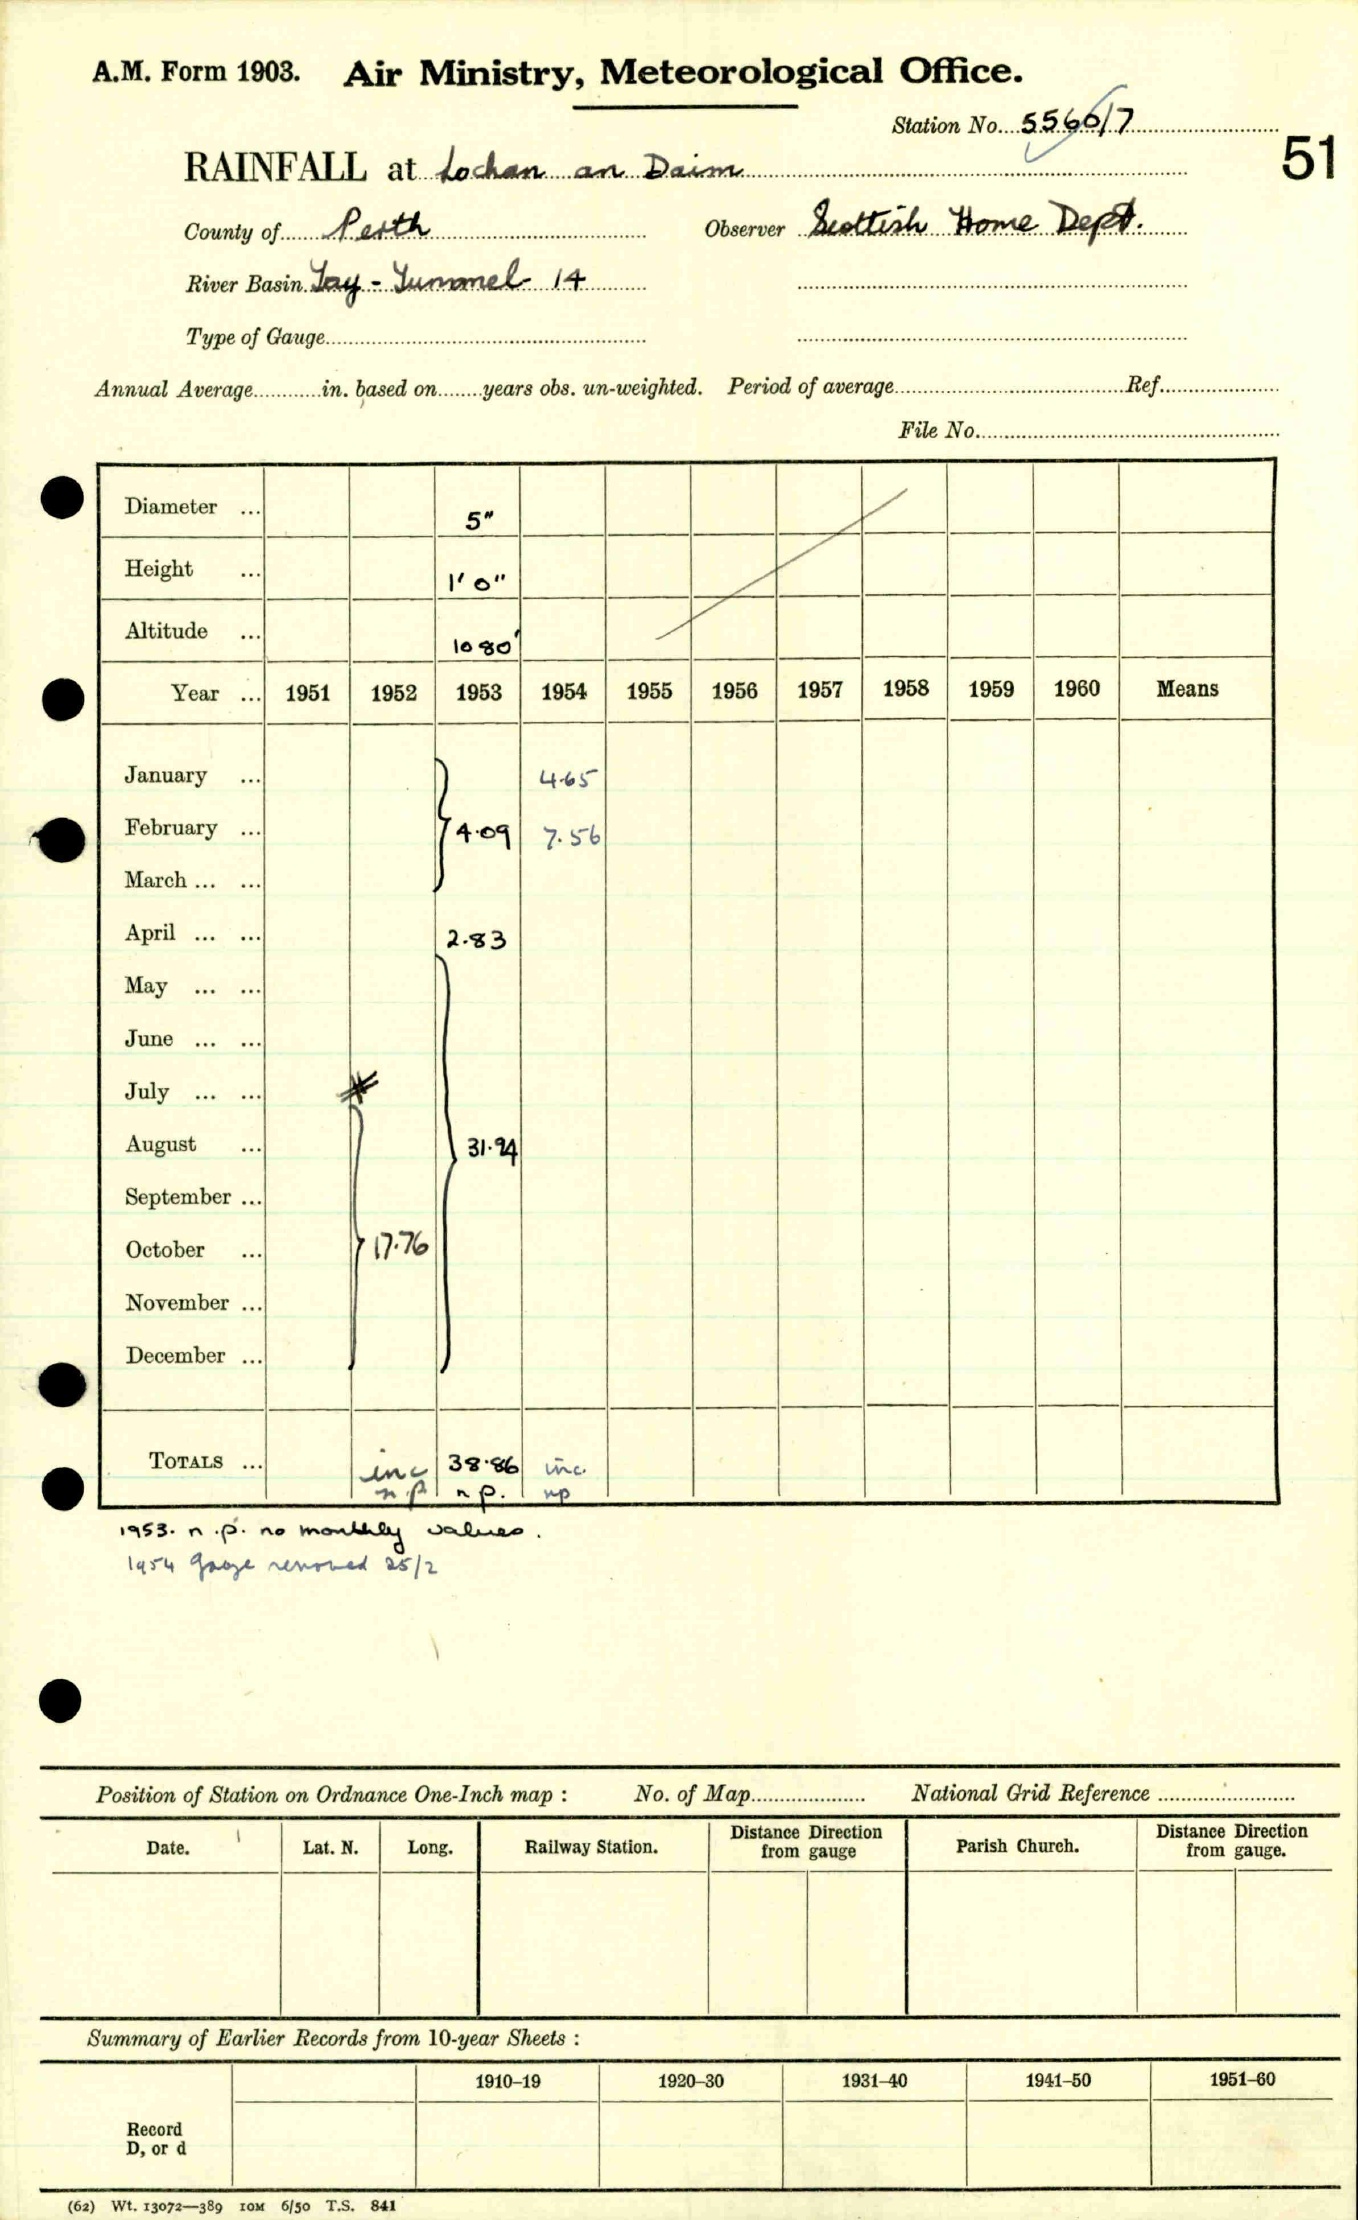 A.M. Form 1903. Air Ministry, Meteorological Office.
Station No. 5560/7
51
RAINFALL at Lochan an Daim
County of Perth Observer Scottish Home Dept.
River Basin Tay - Tummel 14
Type of Gauge
Annual Average in. based on years obs. un-weighted. Period of average Ref.
File No.
Diameter ... 5"
Height ... 1' 0"
Altitude ... 1080'
Year ... 1951 1952 1953 1954 1955 1956 1957 1958 1959 1960 Means
January ... 4.65
February ... 4.09 7.56
March ... ...
April ... ... 2.83
May ... ...
June ... ...
July ... ...
August ... 31.94
September ...
October ... 17.76
November ...
December ...
TOTALS ... inc 38.86 inc.
n.p n p. np
1953. n.p. no monthly values.
1954 Gauge removed 25/2
Position of Station on Ordnance One-Inch map : No. of Map National Grid Reference
Date. Lat. N. Long. Railway Station. Distance Direction from gauge Parish Church. Distance Direction from gauge.
Summary of Earlier Records from 10-year Sheets :
1910–19 1920–30 1931–40 1941–50 1951–60
Record
D, or d
(62) Wt. 13072—389 10M 6/50 T.S. 841